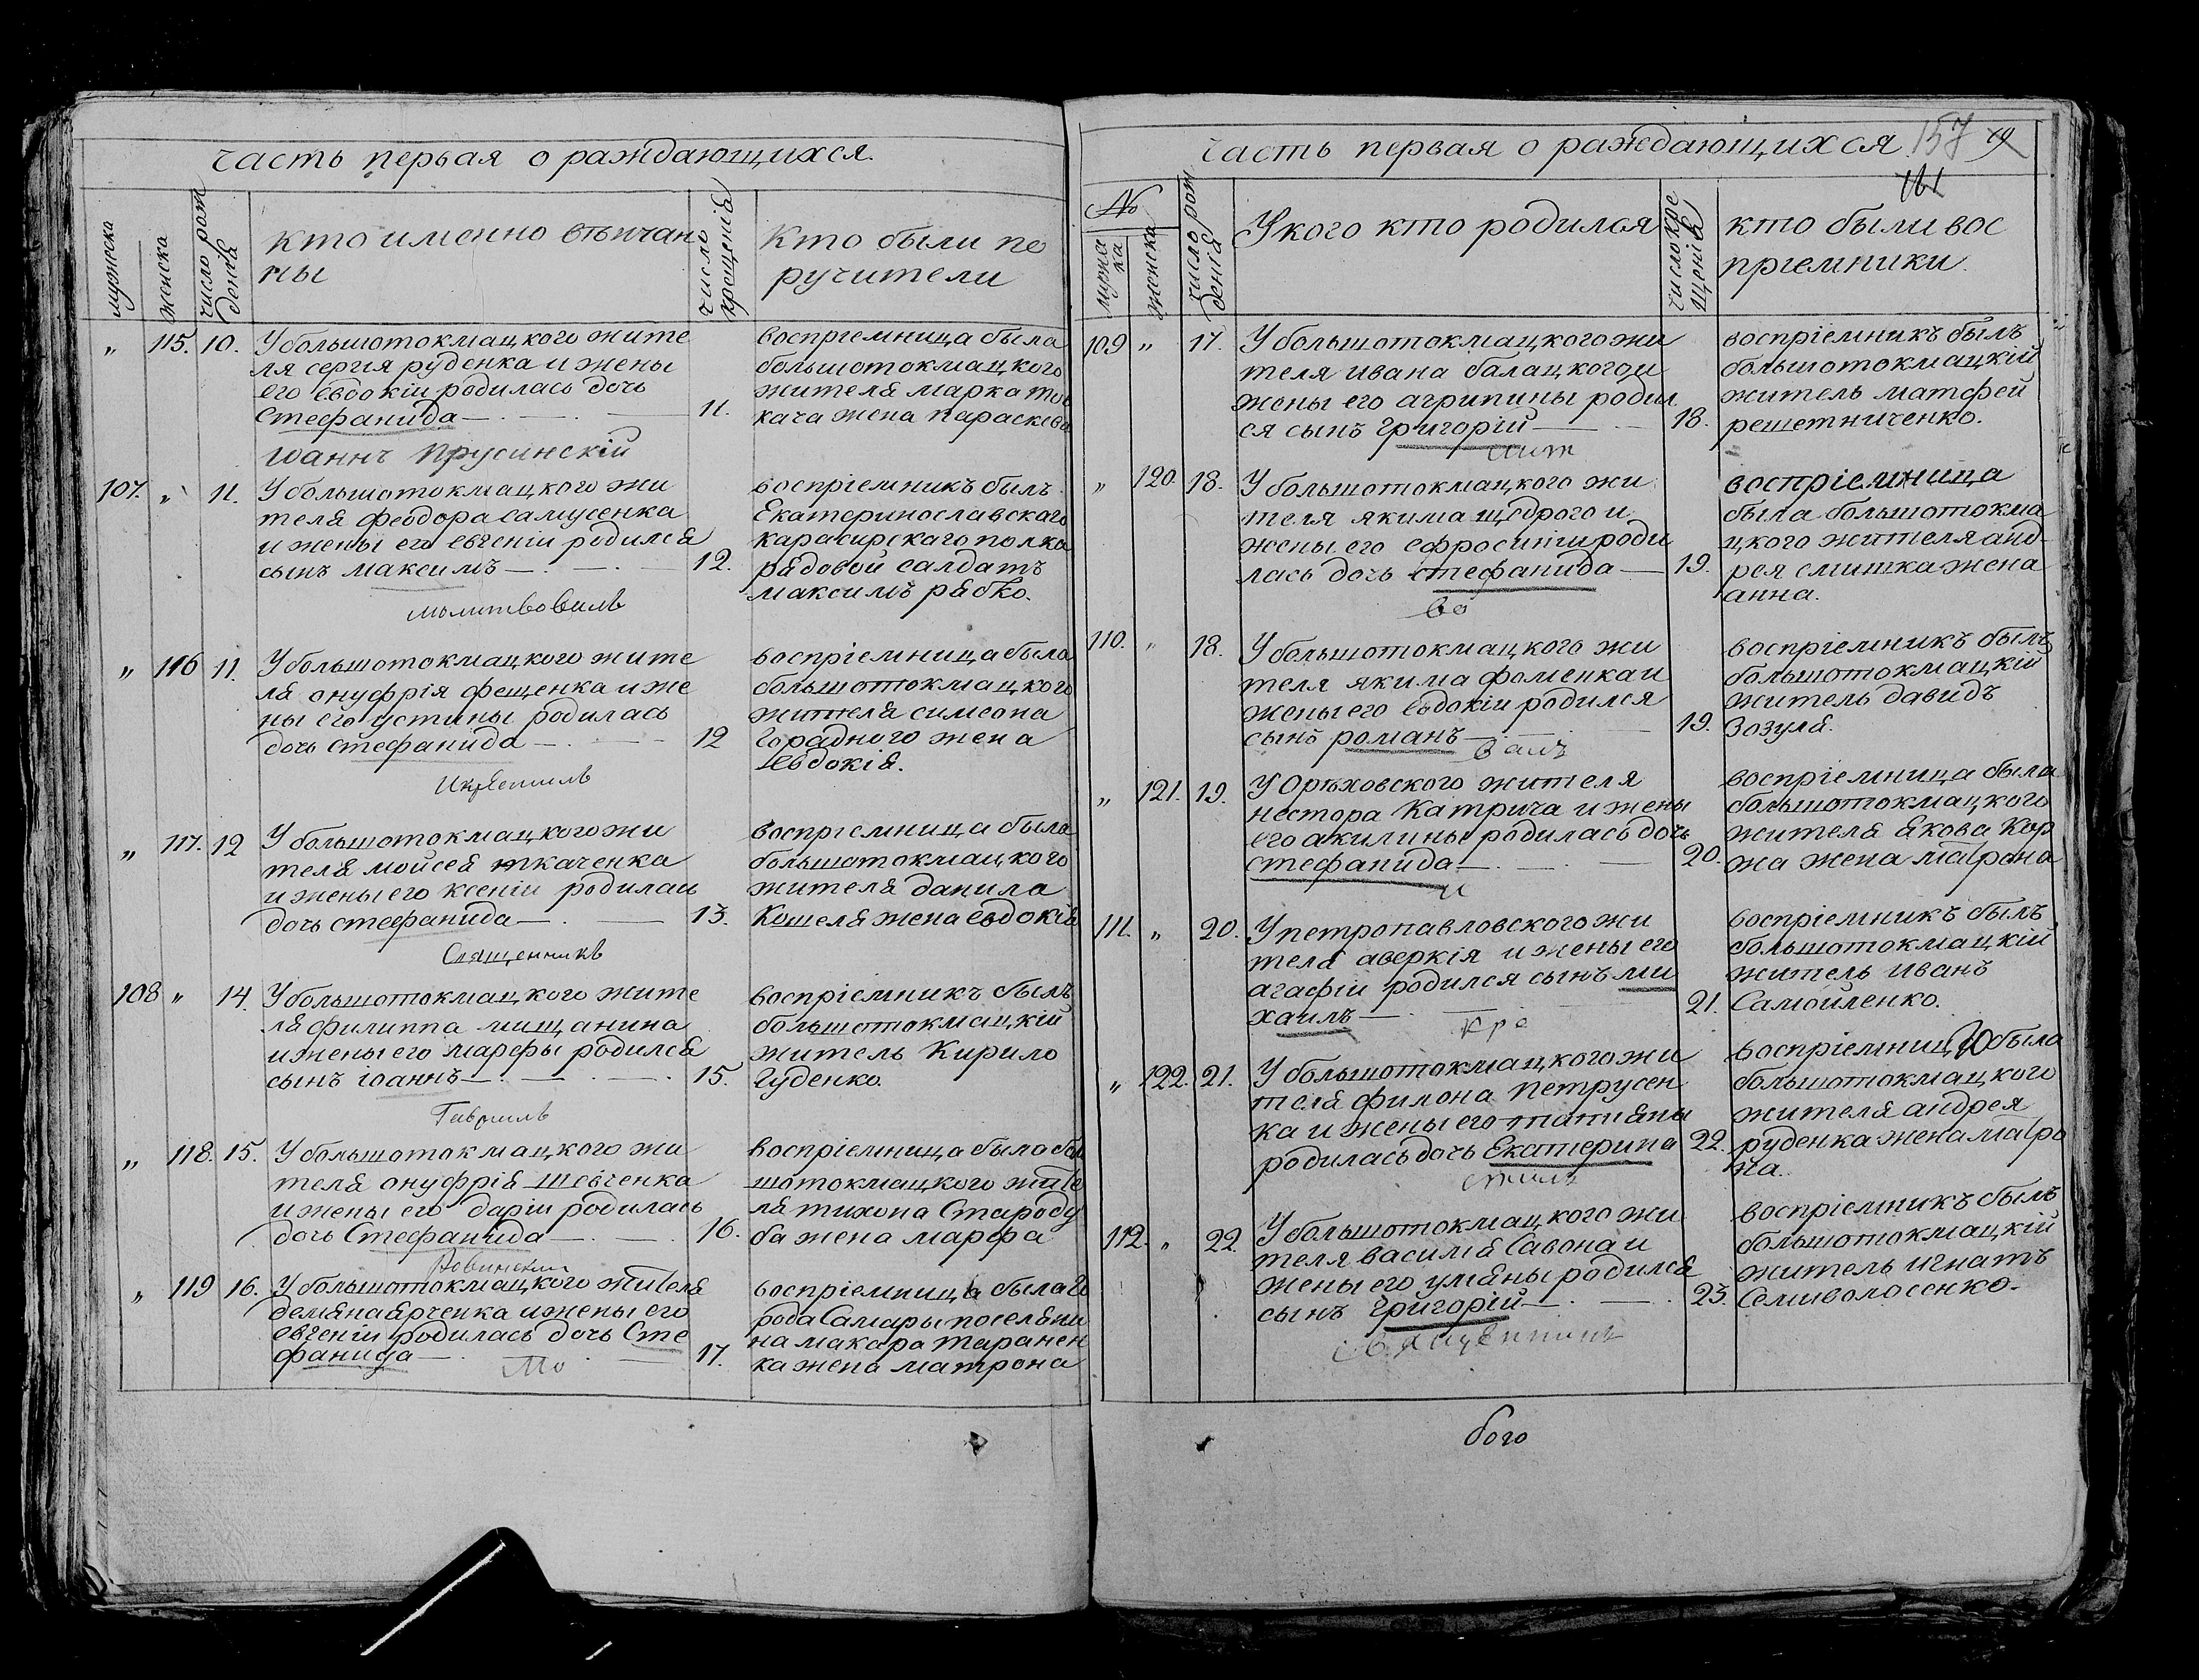 часть первая о раждающихся.
мужеска
женска
число рож
денія
кто именно вѣнчан
ны
число
крещенія
Кто были по
ручители
„ 115. 10. У большотокмацкого жите
ля сергія руденка и жены
его евдокіи родилась дочь
Стефанида 11.
воспріемница была
большотокмацкого
жителя марка тов
кача жена параскева
Іоаннъ Прусинскій
107. „ 11. У большотокмацкого жи
теля феодора самусенка
и жены его евгеніи родился
сынъ максимъ 12.
воспріемникъ былъ
Екатеринославского
карасирскаго полка
рядовой салдатъ
максимъ рябко.
молитвовалъ
„ 116 11. У большотокмацкого жите
ля онуфрія фещенка и же
ны его устины родилась
дочь стефанида 12
воспріемница была
большотокмацкого
жителя симеона
жена
Евдокія.
И крестилъ
„ 117. 12 У большотокмацкого жи
теля мойсея ткаченка
и жены его ксеніи родилась
дочь стефанида 13.
воспріемница была
большотокмацкого
жителя данила
Кошеля жена евдокія
Священникъ
108 „ 14. У большотокмацкого жите
ля филиппа мищанина
и жены его марфы родился
сынъ іоаннъ 15.
воспріемникъ былъ
большотокмацкій
житель Кирило
Гуденко.
Гавріилъ
„ 118. 15. У большотокмацкого жи
теля онуфрія шевченка
и жены его даріи родилась
дочь Стефанида 16.
воспріемница была бол
шотокмацкого жите
ля тихона Староду
ба жена марфа
„ 119 16. У большотокмацкого жителя
демяна ярченка и жены его
евгеніи родилась дочь Сте
фанида 17.
воспріемница была го
рода Самары поселяни
на макара таранен
ка жена матрона
Мо
часть первая о раждающихся 157
161
№
мужес
ка
женска
число рож
денія
У кого кто родился
число кре
щенія
кто были вос
пріемники.
109 „ 17. У большотокмацкого жи
теля ивана балацкого и
жены его агрипины родил
ся сынъ Григорій 18.
воспріемникъ былъ
большотокмацкій
житель матфей
решетниченко.
лит
„ 120. 18. У большотокмацкого жи
теля якима щедрого и
жены его ефросиніи роди
лась дочь стефанида 19.
воспріемница
была большотокма
цкого жителя анд
рея смитка жена
анна.
во
110. „ 18. У большотокмацкого жи
теля якима фоменка и
жены его евдокіи родился
сынъ романъ 19.
воспріемникъ былъ
большотокмацкій
житель давидъ
Зозуля.
валъ
„ 121. 19. У Орѣховского жителя
нестора Катрича и жены
его акилины родилась дочь
стефанида 20.
воспріемница была
большотокмацкого
жителя якова Кор
жа жена матрона
и
111. „ 20. У петропавловского жи
теля аверкія и жены его
агафіи родился сынъ ми
хаилъ 21.
воспріемникъ былъ
большотокмацкій
житель иванъ
Самойленко.
кре
„ 122. 21. У большотокмацкого жи
теля филона петрусен
ка и жены его татияны
родилась дочь Екатерина 22.
воспріемница была
большотокмацкого
жителя андрея
руденка жена матро
на.
стилъ
112. „ 22. У большотокмацкого жи
теля василія Савона и
жены его уляны родился
сынъ Григорій 23.
воспріемникъ былъ
большотокмацкій
житель игнатъ
Семиволосенко.
бого